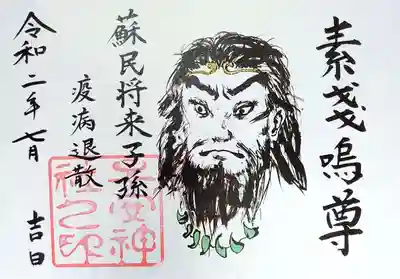 素戔嗚尊
蘇民将来子孫
疫病退散
令和二年七月 吉日
社之印